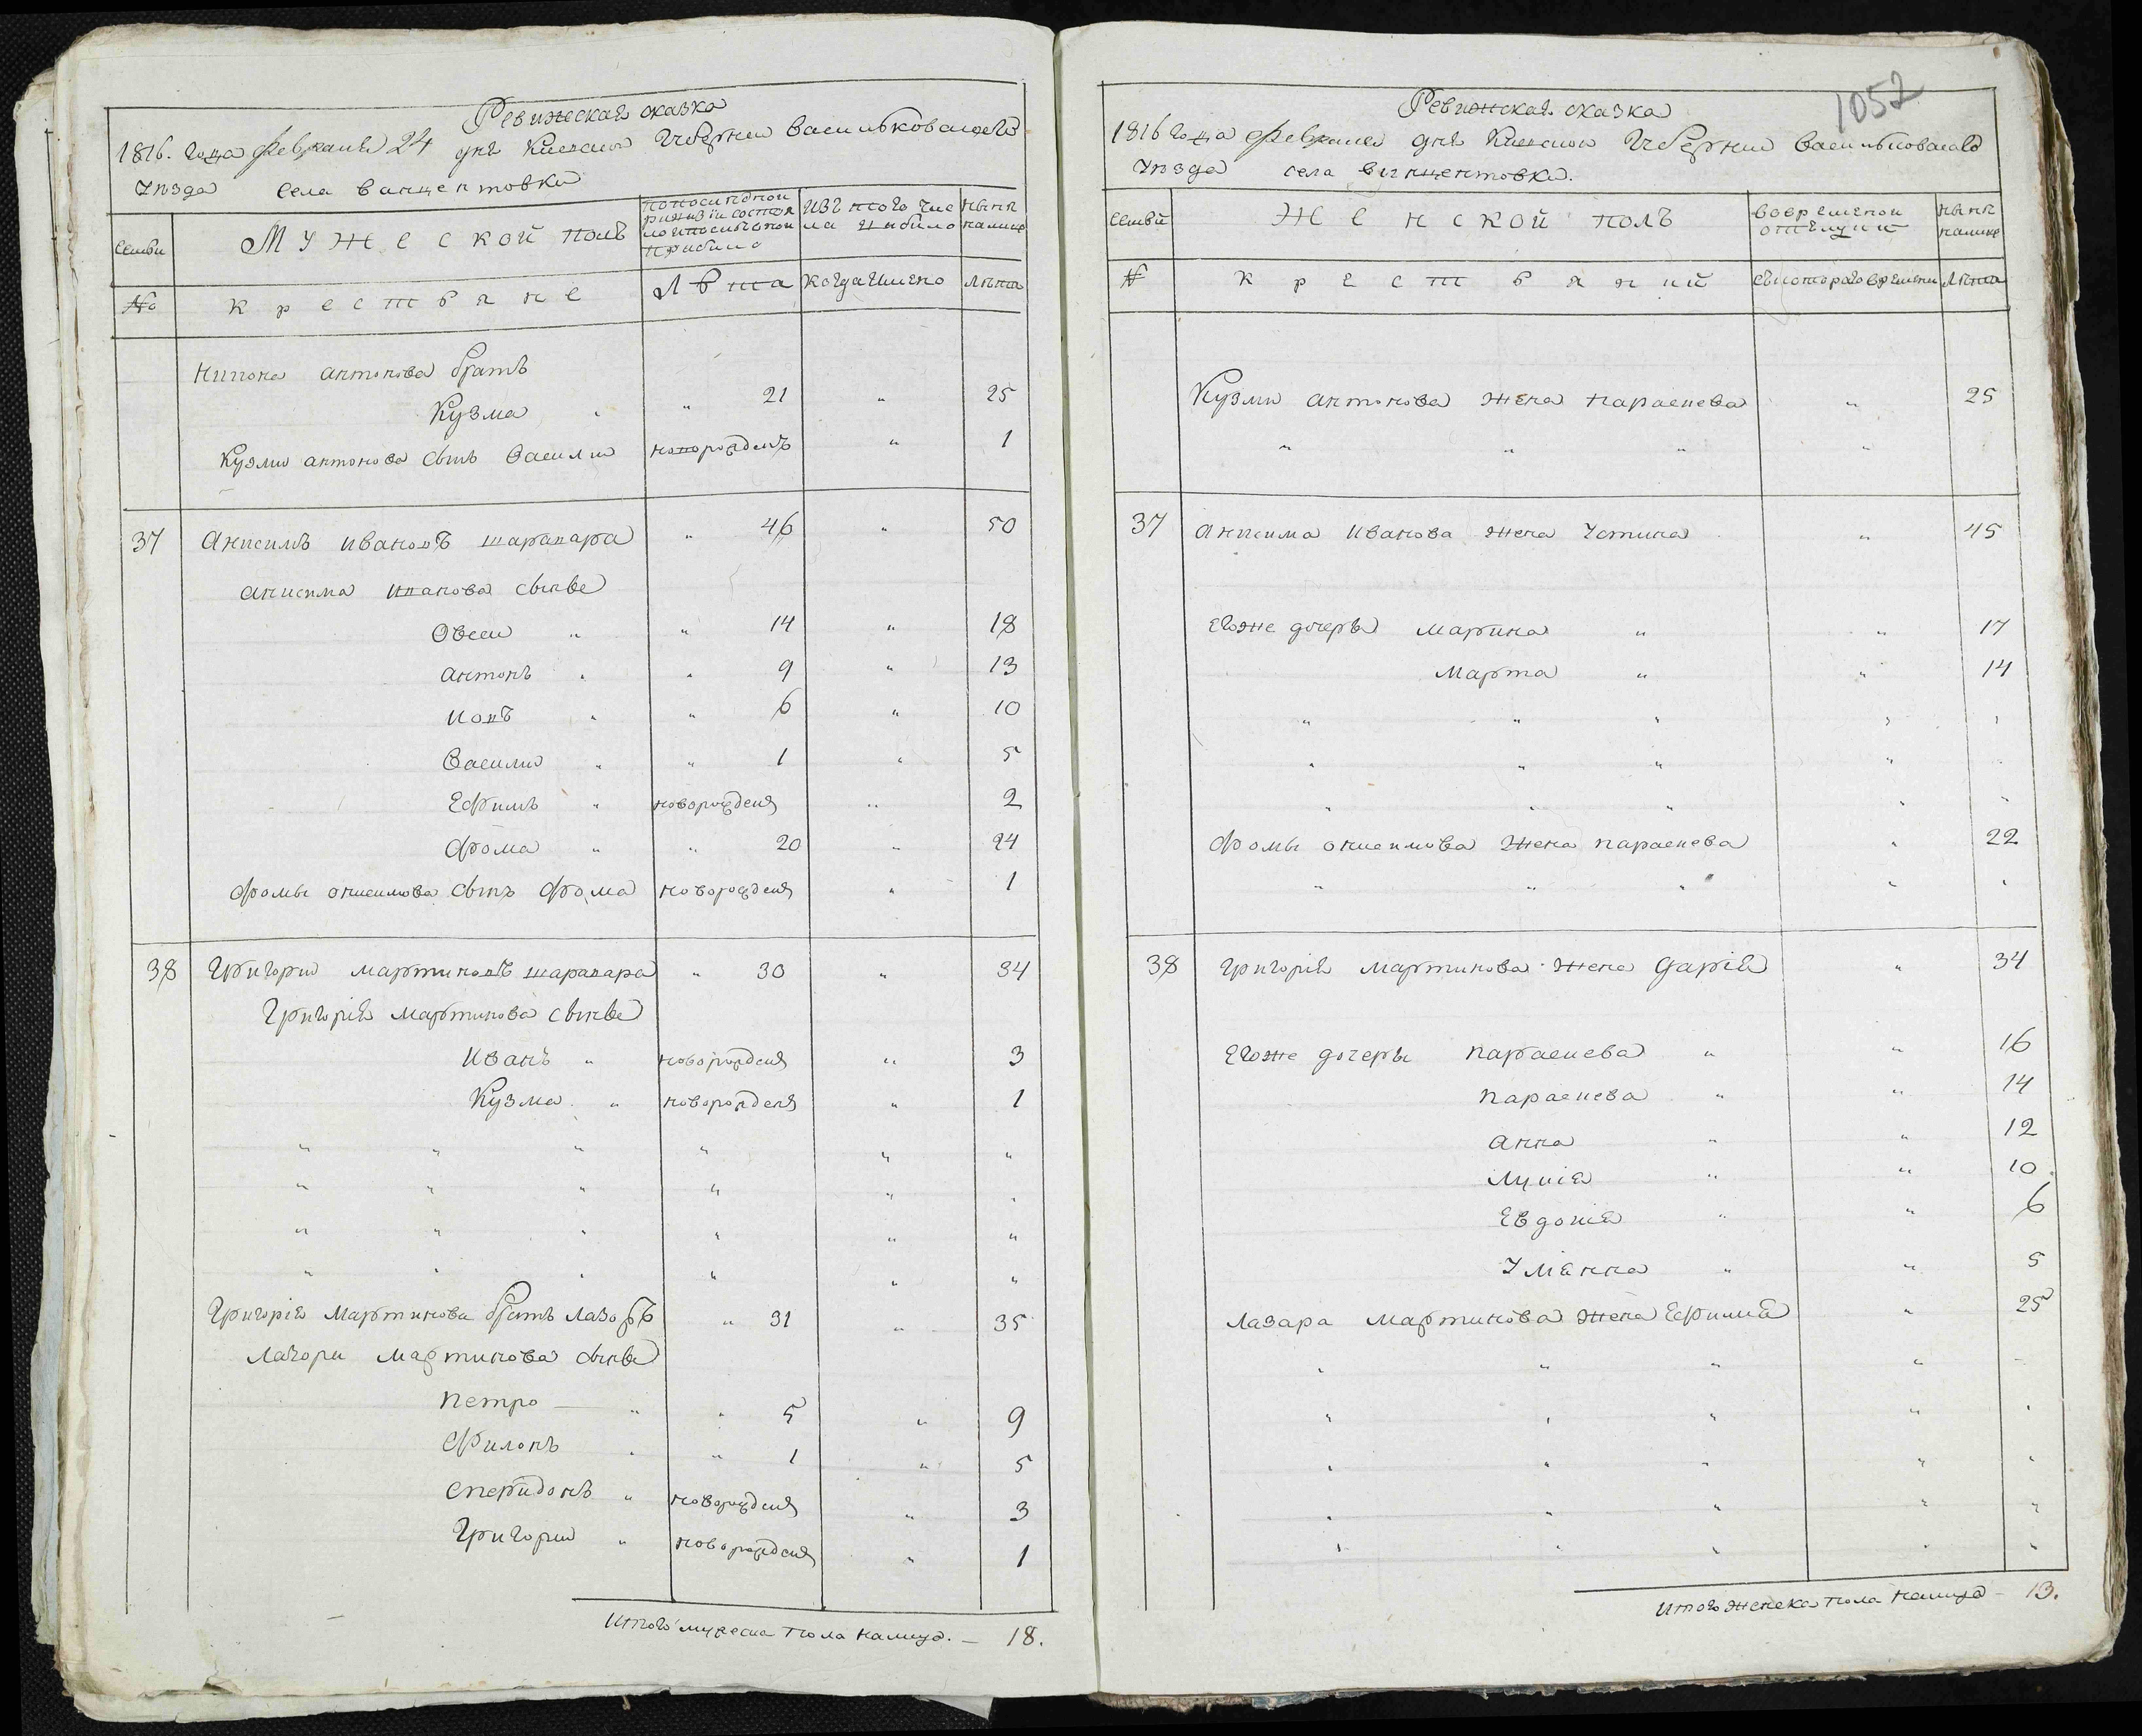 Ревижская сказка
1816. года Февраля 24 дня Киевской Губернии васильковского
Уезда села винцентовки
семьи
Мужеской полъ
№
крестьяне
Лѣта
когда имено
лѣта
антонова братъ
Кузма " " 21 " 25
Кузми антонова сынъ Василий новорожденъ " 1
37 Анисимъ ивановъ шарапара " 46 " 50
анисима иванова сынве
Овсей " " 14 " 18
антонъ " " 9 " 13
иовъ " " 6 " 10
Василий " " 1 " 5
Ефимъ " новорожденъ " 2
Фома " " 20 " 24
Фомы онисимова сынъ Фома новорожденъ " 1
38 Григорий мартиновъ шарапара " 30 " 34
Григорія мартинова сынве
Иванъ " новорожденъ " 3
Кузма " новорожденъ " 1
Григорія мартинова братъ лазоръ " 31 " 35
лазоря мартинова сынве
петро " " 5 " 9
Филонъ " " 1 " 5
сперидонъ " новорожденъ " 3
Григорий " новорожденъ " 1
Итого мужеска пола налицо. — 18.
1052
Ревижская сказка
1816 года Февраля дня Киевской Губернии васильковского
Уезда села винцентовки.
семьи
Женской полъ
во времяной отлучки
ныне налице
№
крестьяний
с которого времени
лѣта
Кузми антонова жена параскева " 25
37 анисима иванова жена Устина " 45
его же дочеры марина " " 17
марта " " 14
Фомы онисимова жена параскева " 22
38 григорія мартинова жена дарія " 34
Его же дочеры параскева " " 16
параскева " " 14
анна " " 12
лукія " " 10
Евдокія " " 6
Уліянна " " 5
лазара мартинова жена Ефимія " 25
Итого женска пола налицо — 13.